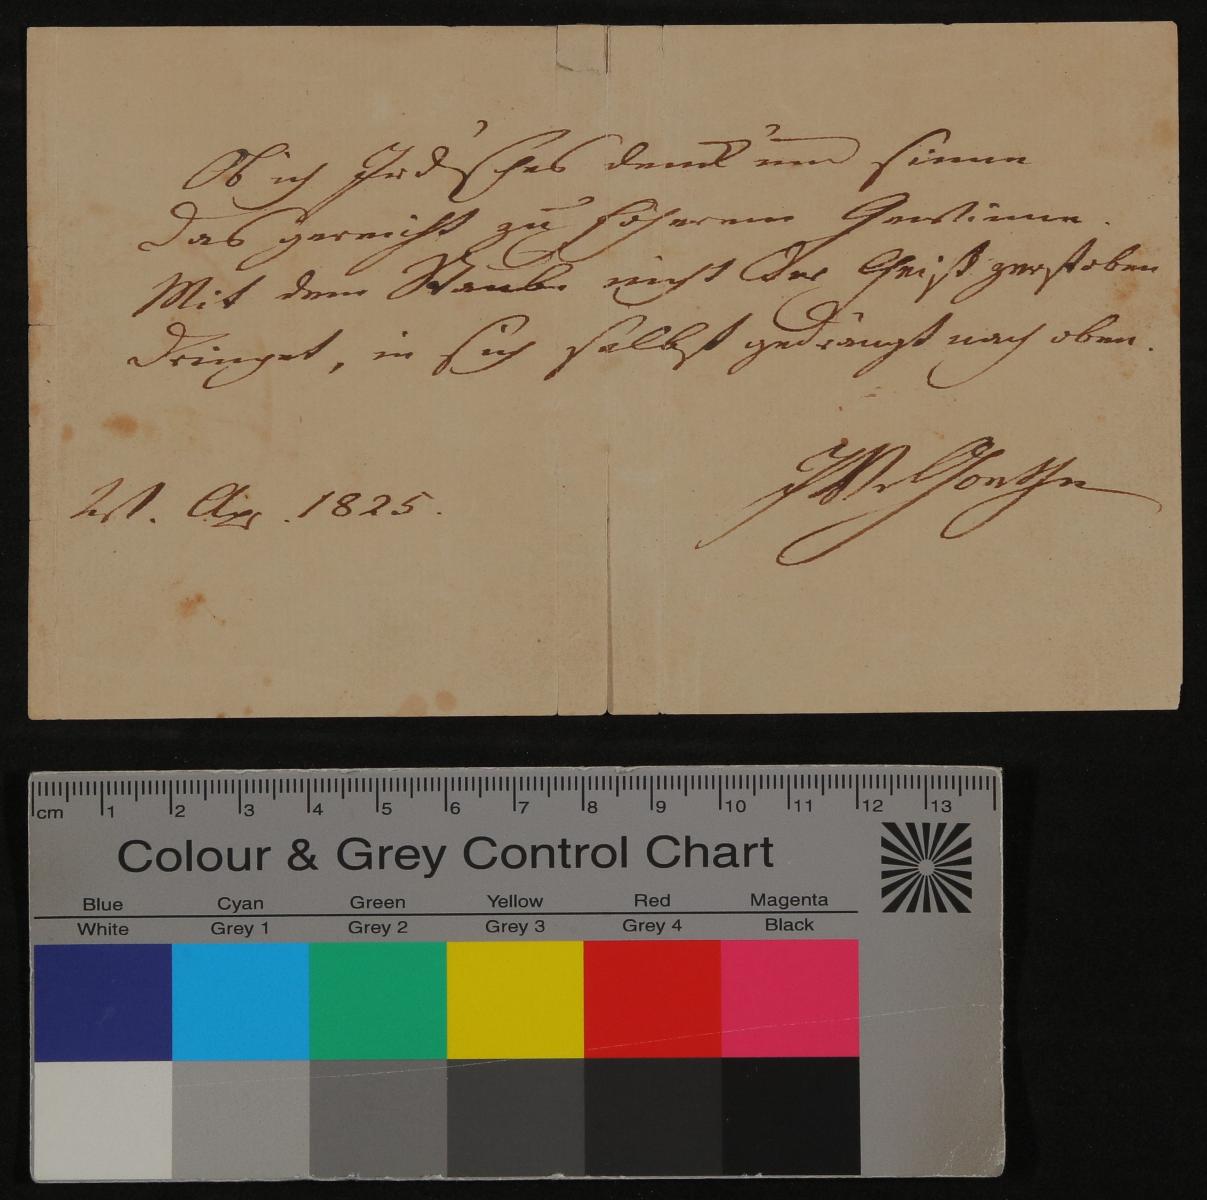 Ob ich Ird'sches denck' und sinne
Das gereicht zu höherem Gewinne.
Mit dem Staube nicht der Geist zerstoben
Dringet, in sich selbst gedrängt nach oben.
W. Apr. 1825.
JWvGoethe
cm 1 2 3 4 5 6 7 8 9 10 11 12 13
Colour & Grey Control Chart
Blue Cyan Green Yellow Red Magenta
White Grey 1 Grey 2 Grey 3 Grey 4 Black